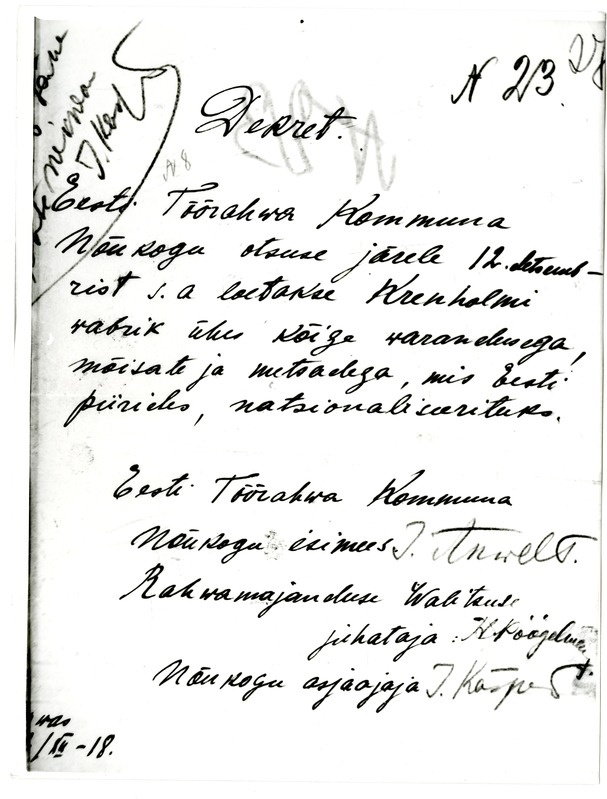 N 213
Dekret.
N 8
Eesti Töörahwa Kommuna
Nõukogu otsuse järele 12. detsemb-
rist s. a loetakse Krenholmi
wabrik ühes kõige warandusega,
mõisate ja metsadega, mis Eesti
piirides, natsionaliseerituks.
Eesti Töörahwa Kommuna
Nõukogu esimees J. Anwelt.
Rahwamajanduse Walitsuse
juhataja: H. Pöögelmann
Nõukogu asjaajaja J. Käspert
was
/XII - 18.